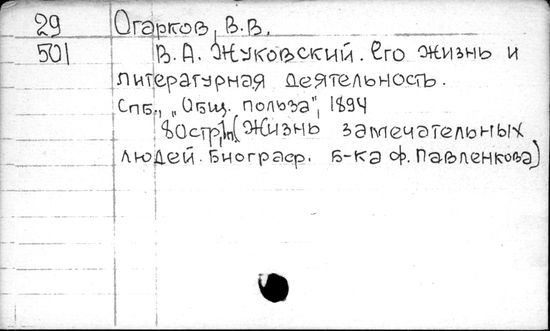 29 Огарков, В.В.
501 В.А. Жуковский. Его жизнь и
литературная деятельность.
Спб., „Общ. польза", 1894
80стр, (Жизнь замечательных
людей. Биограф. б-ка Ф. Павленкова)